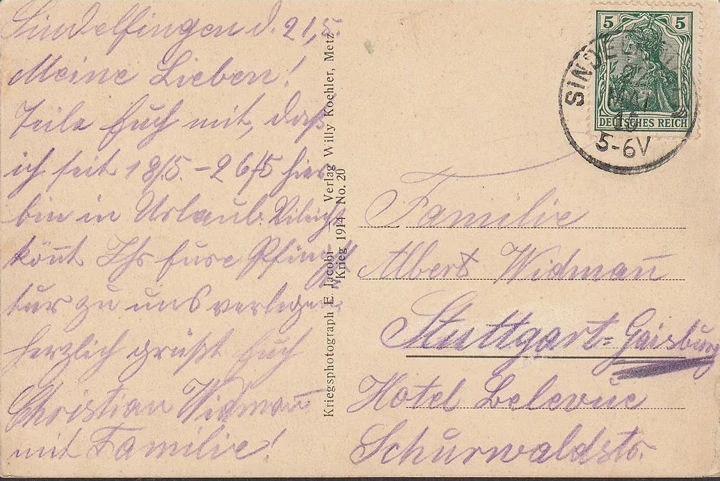 Sindelfingen d. 21,5.
Meine Lieben!
Teile Euch mit, daß
ich seit 18/5 – 26/5 hier
bin in Urlaub. Vileicht
könt Ihr Eure Pfingst
tur zu uns verlegen
herzlich grüßt Euch
Christian Widman̄
mit Familie!
Kriegsphotograph E. Jacobi Verlag Willy Koehler, Metz
Krieg 1914 No. 20
5 5
DEUTSCHES REICH
5-6V
Familie
Albert Widman̄
Stuttgart-Gaisburg
Hotel Belevue
Schurwaldstr.